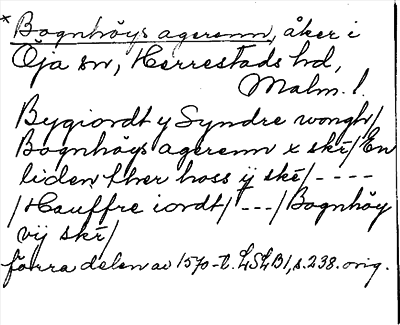 * Bognhöys agerenn, åker i
Öja sn, Herrestads hd,
Malm. l.
Bygiordt y Syndre wongh/
Bognhöys agerenn x skr/ En
liden ther hoss ij skr/ - - - -
/Hauffre iordt/ - - - /Bognhöy
vij skr/
förra delen av 1570-t. LSLB1, s. 238. orig.